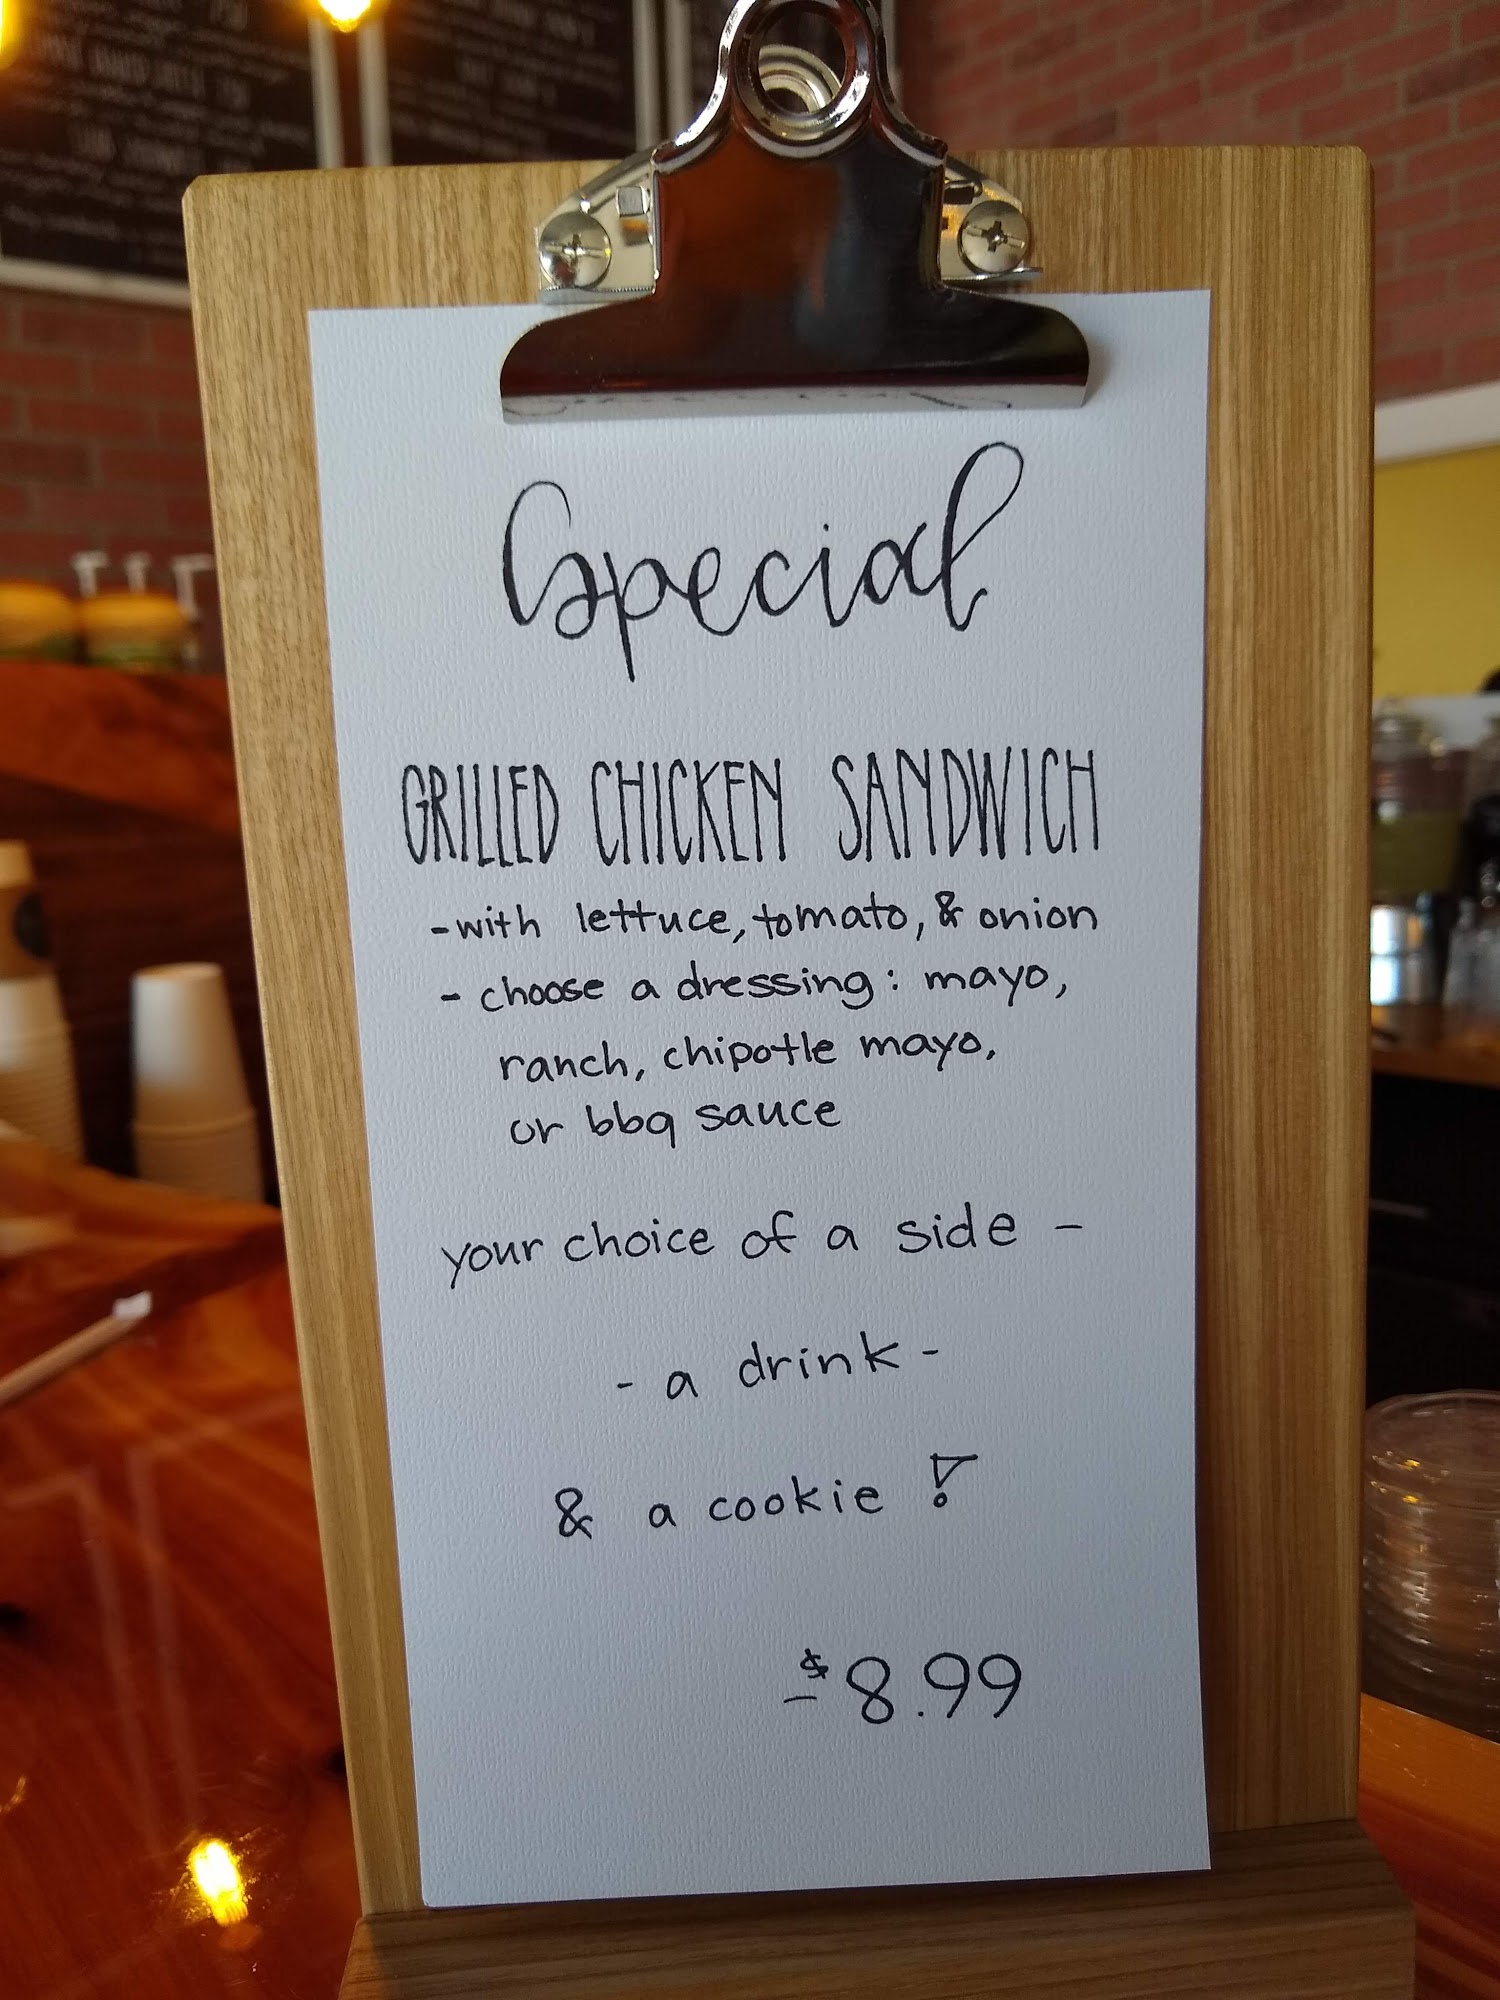 Special
GRILLED CHICKEN SANDWICH
-with lettuce, tomato, & onion
- choose a dressing: mayo,
ranch, chipotle mayo,
or bbq sauce
your choice of a side -
- a drink -
& a cookie!
$8.99